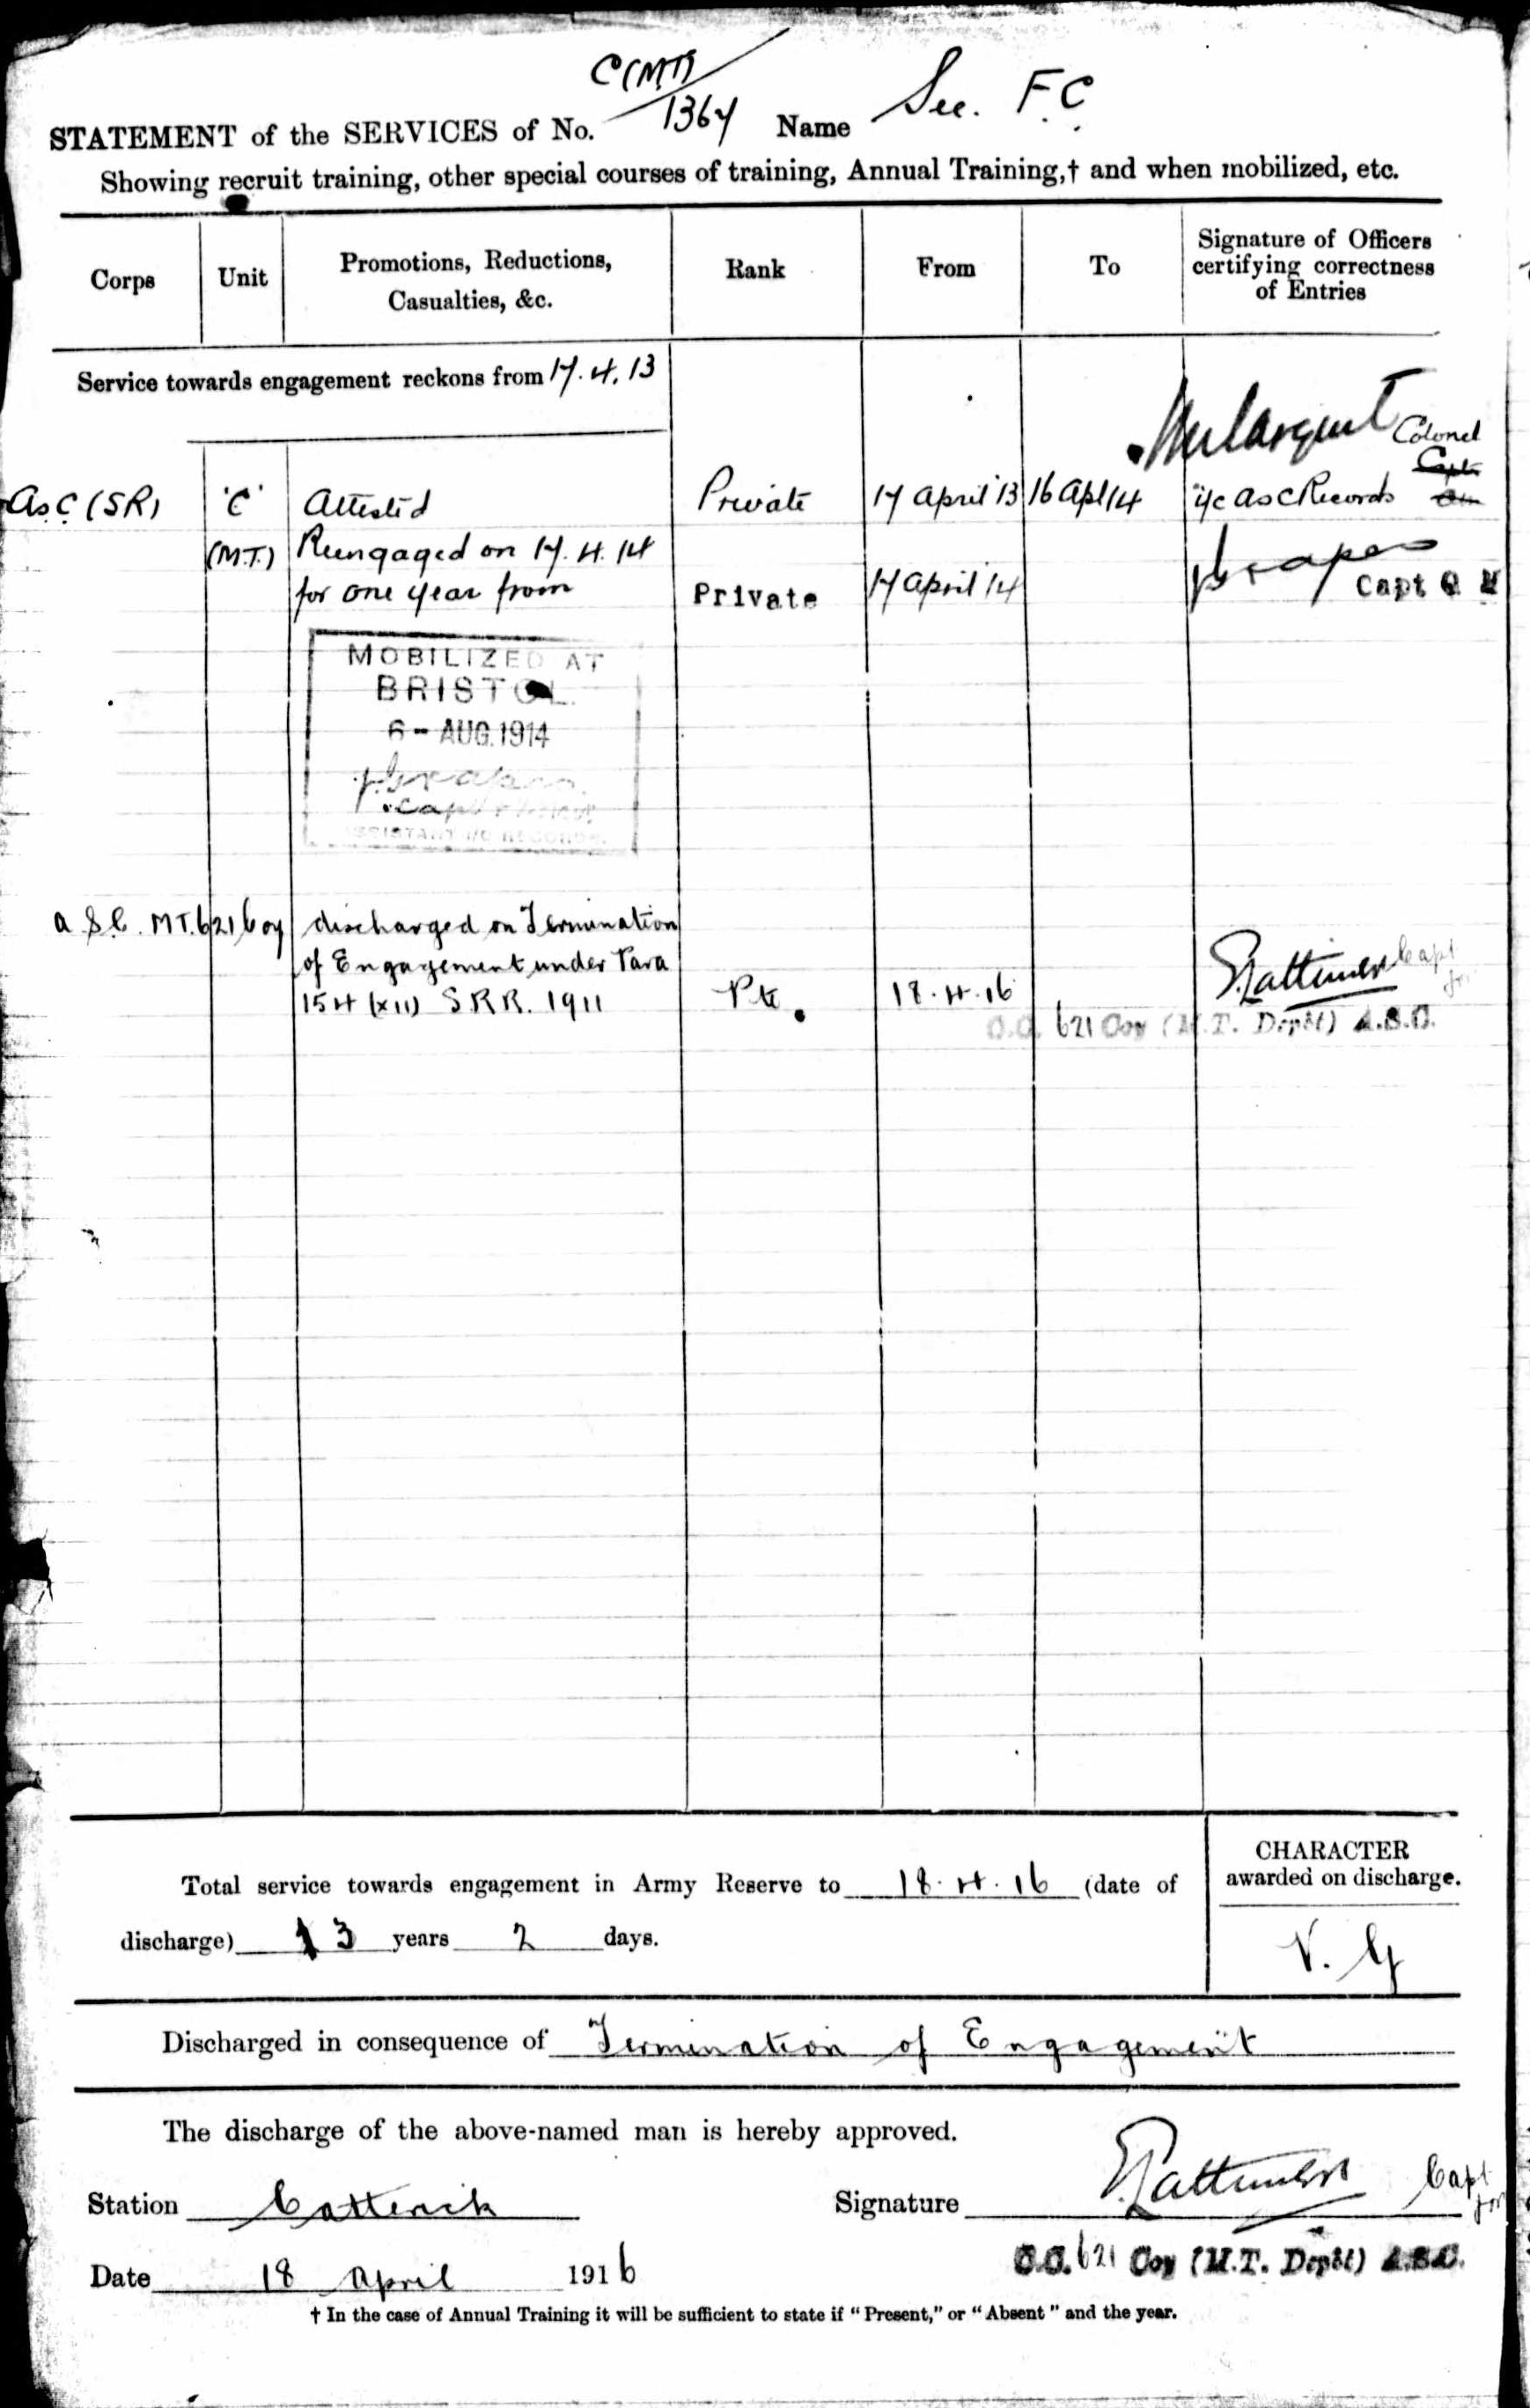 C(MT)
STATEMENT of the SERVICES of No. 1367 Name See. F.C.
Showing recruit training, other special courses of training, Annual Training,† and when mobilized, etc.
Corps Unit Promotions, Reductions, Casualties, &c. Rank From To Signature of Officers certifying correctness of Entries
Service towards engagement reckons from 17.4.13
Colonel
Capt
A.S.C. (SR) 'C' Attested Private 17 April '13 16 Apl 14 i/c ASC Records
(M.T.) Reengaged on 17.4.14
for one year from Private 17 April '14 Capt
MOBILIZED AT
BRISTOL
6 - AUG. 1914
Capt
ASSISTANT I/C RECORDS.
A.S.C. MT. 621 Coy discharged on Termination
of Engagement under Para Capt
154 (XII) S.R.R. 1911 Pte. 18.4.16 for
O.C. 621 Coy (M.T. Depôt) A.S.C.
Total service towards engagement in Army Reserve to 18.4.16 (date of
discharge) 3 years 2 days.
CHARACTER
awarded on discharge.
V. G
Discharged in consequence of Termination of Engagement
The discharge of the above-named man is hereby approved.
Station Catterick Signature Capt for
O.C. 621 Coy (M.T. Depôt) A.S.C.
Date 18 April 1916
† In the case of Annual Training it will be sufficient to state if "Present," or "Absent" and the year.